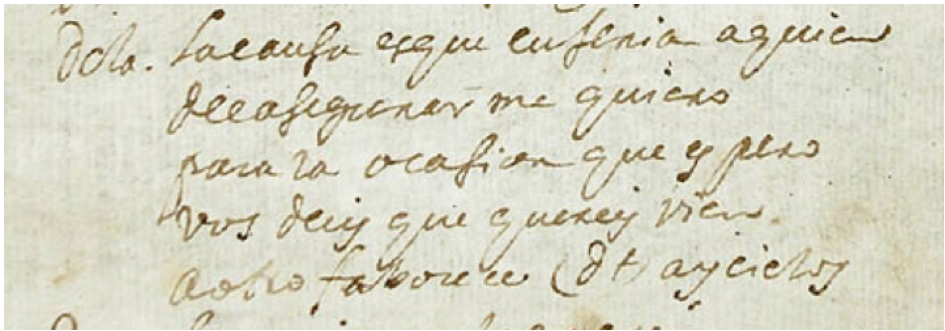 dcta. la causa es que eusenia a quien
de casegurar me quiero
para la ocasion que espero
vos decis que quereis vien.
a otro faborece (dt) ay cielos